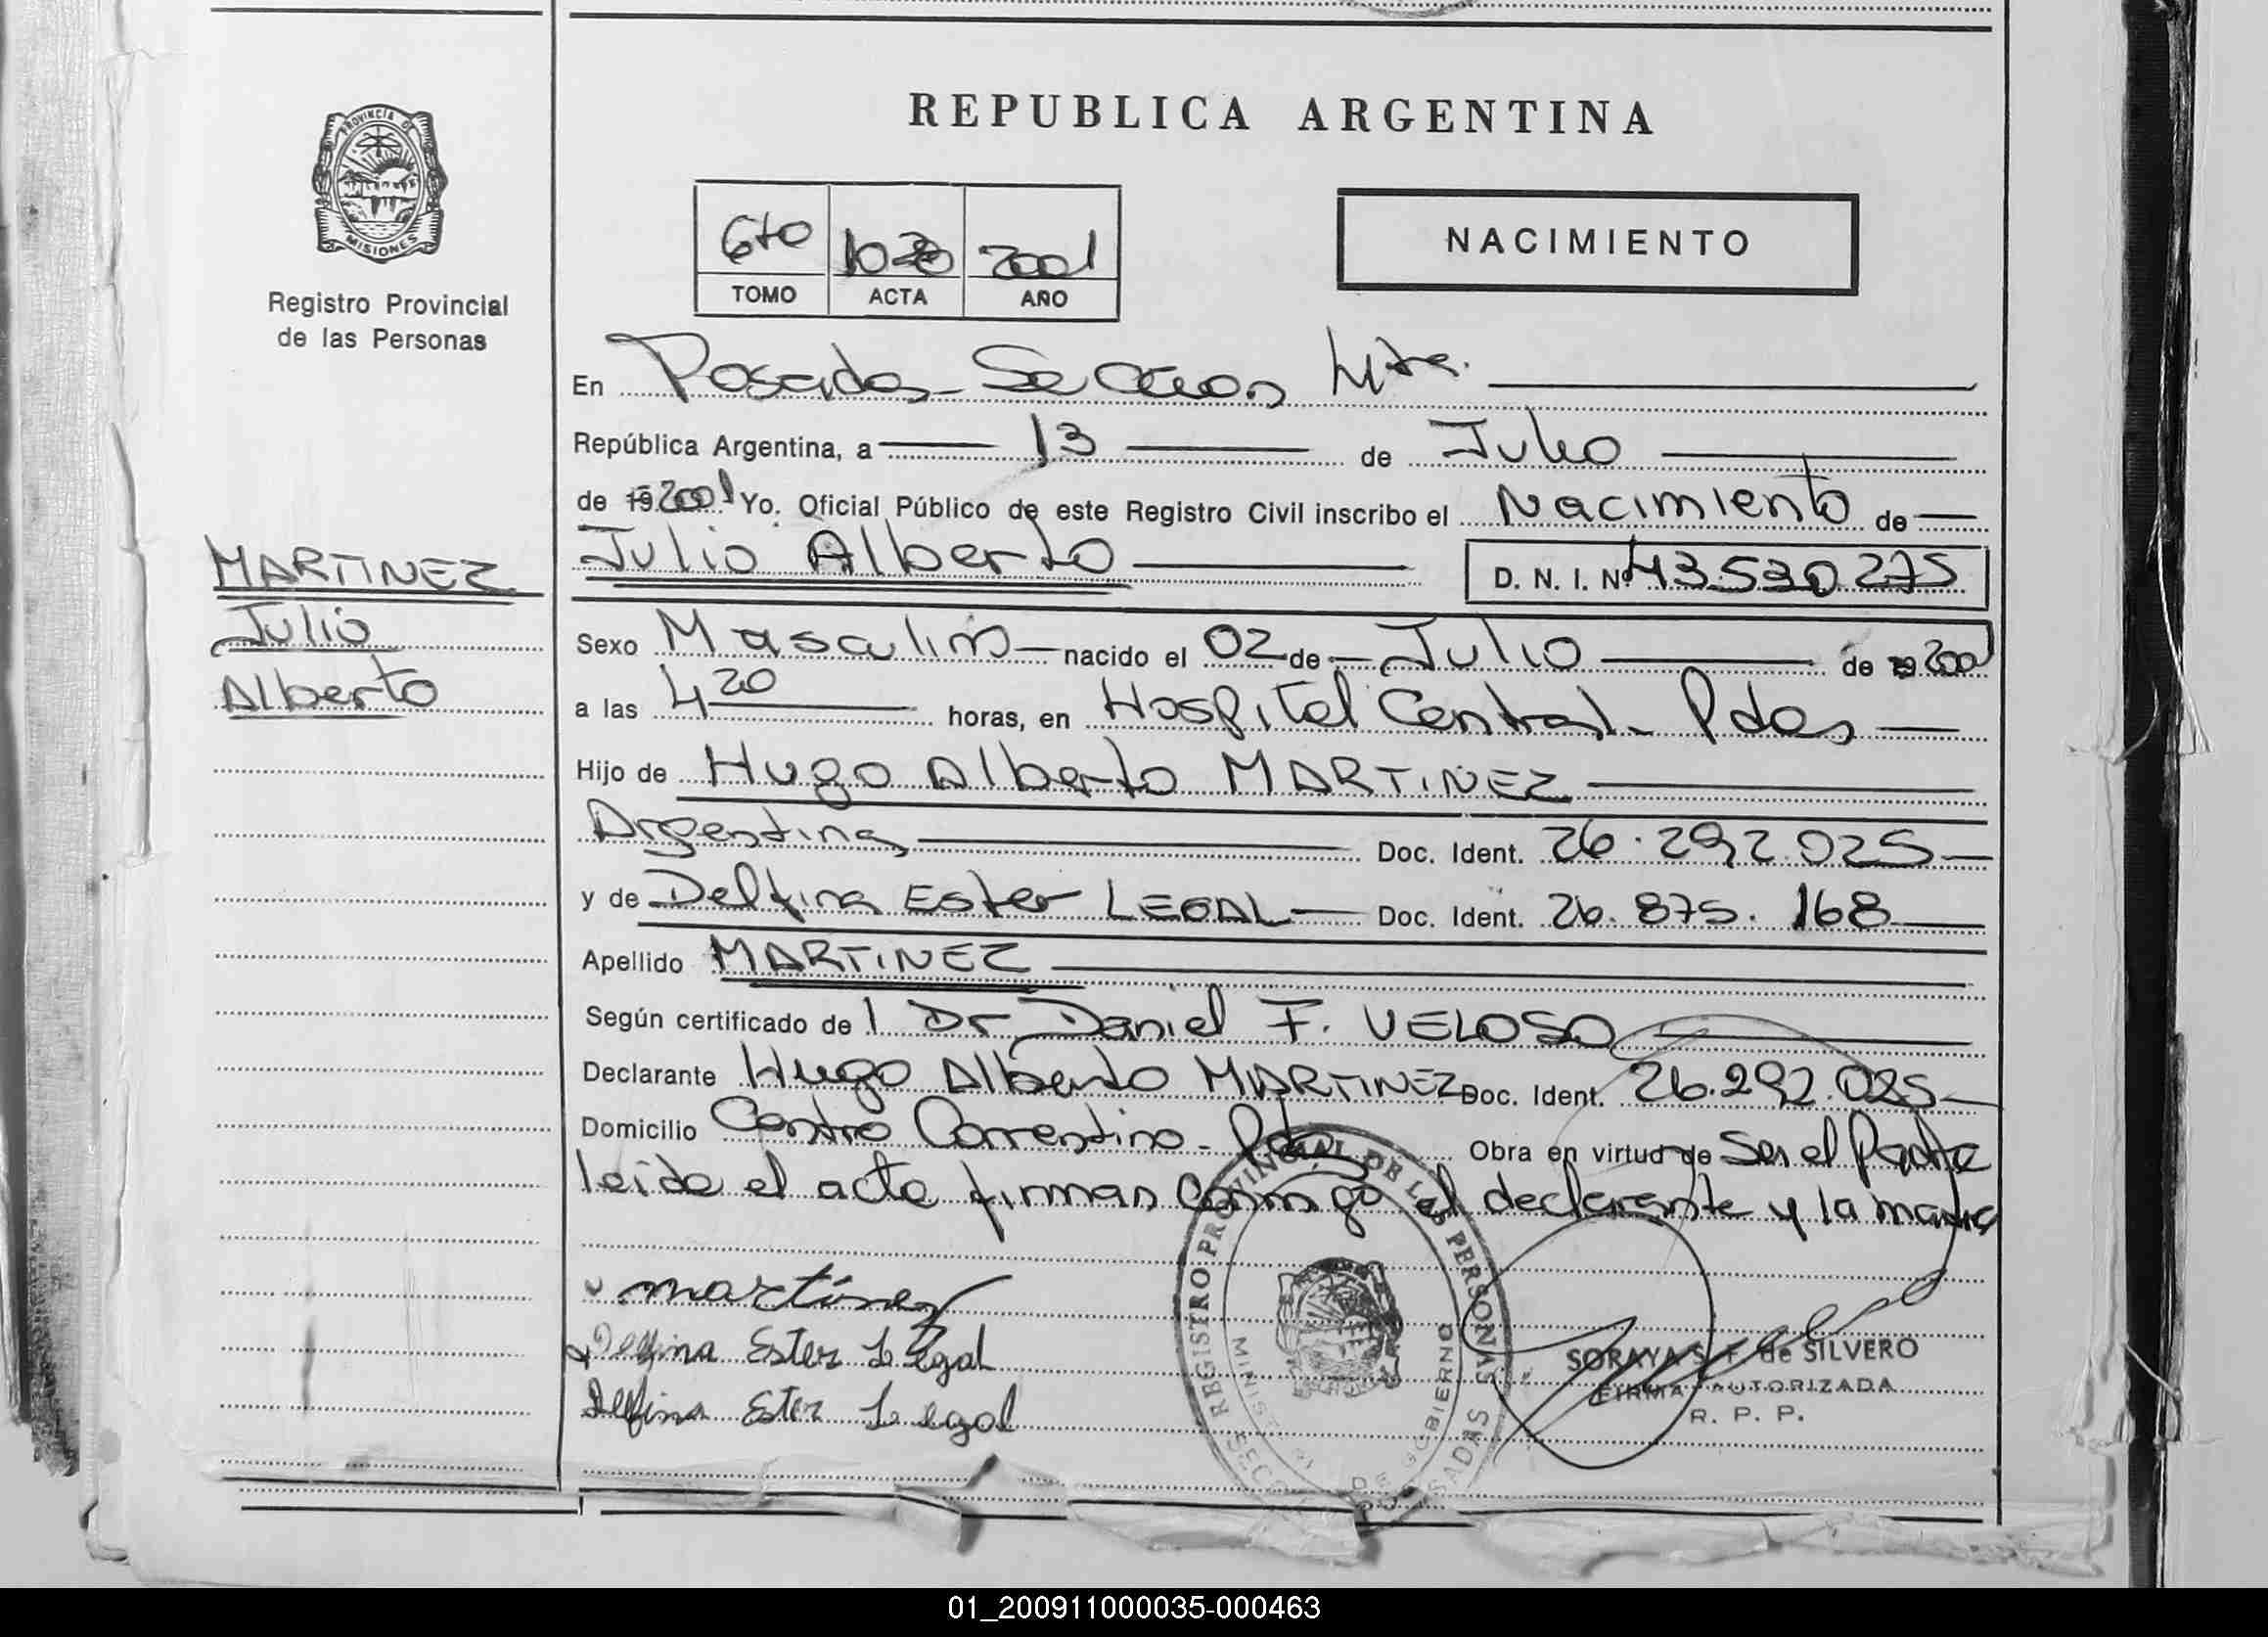 REPUBLICA ARGENTINA
PROVINCIA DE
MISIONES
Registro Provincial
de las Personas
6to 2001
TOMO ACTA AÑO
NACIMIENTO
En Posadas
República Argentina, a 13 de Julio
de 19 2001 Yo. Oficial Público de este Registro Civil inscribo el Nacimiento de
MARTINEZ
Julio
Alberto
Julio Alberto D. N. I. Nº 43.530.275
Sexo Masculino nacido el 02 de Julio de 2001
a las 4 20 horas, en Hospital Central - Pdas
Hijo de Hugo Alberto MARTINEZ
Argentina Doc. Ident. 26.292.025
y de Delfina Ester LEGAL Doc. Ident. 26.875.168
Apellido MARTINEZ
Según certificado de l Dr Daniel F. VELOSO
Declarante Hugo Alberto MARTINEZ Doc. Ident. 26.292.025
Domicilio Centro Correntino - Pdas Obra en virtud de Ser el Padre
leida el acta firman conmigo el declarante y la madre
martinez
Delfina Ester Legal
Delfina Ester Legal
REGISTRO PROVINCIAL DE LAS PERSONAS
DE GOBIERNO
SORAYA S. F. de SILVERO
FIRMA AUTORIZADA
R. P. P.
01_200911000035-000463